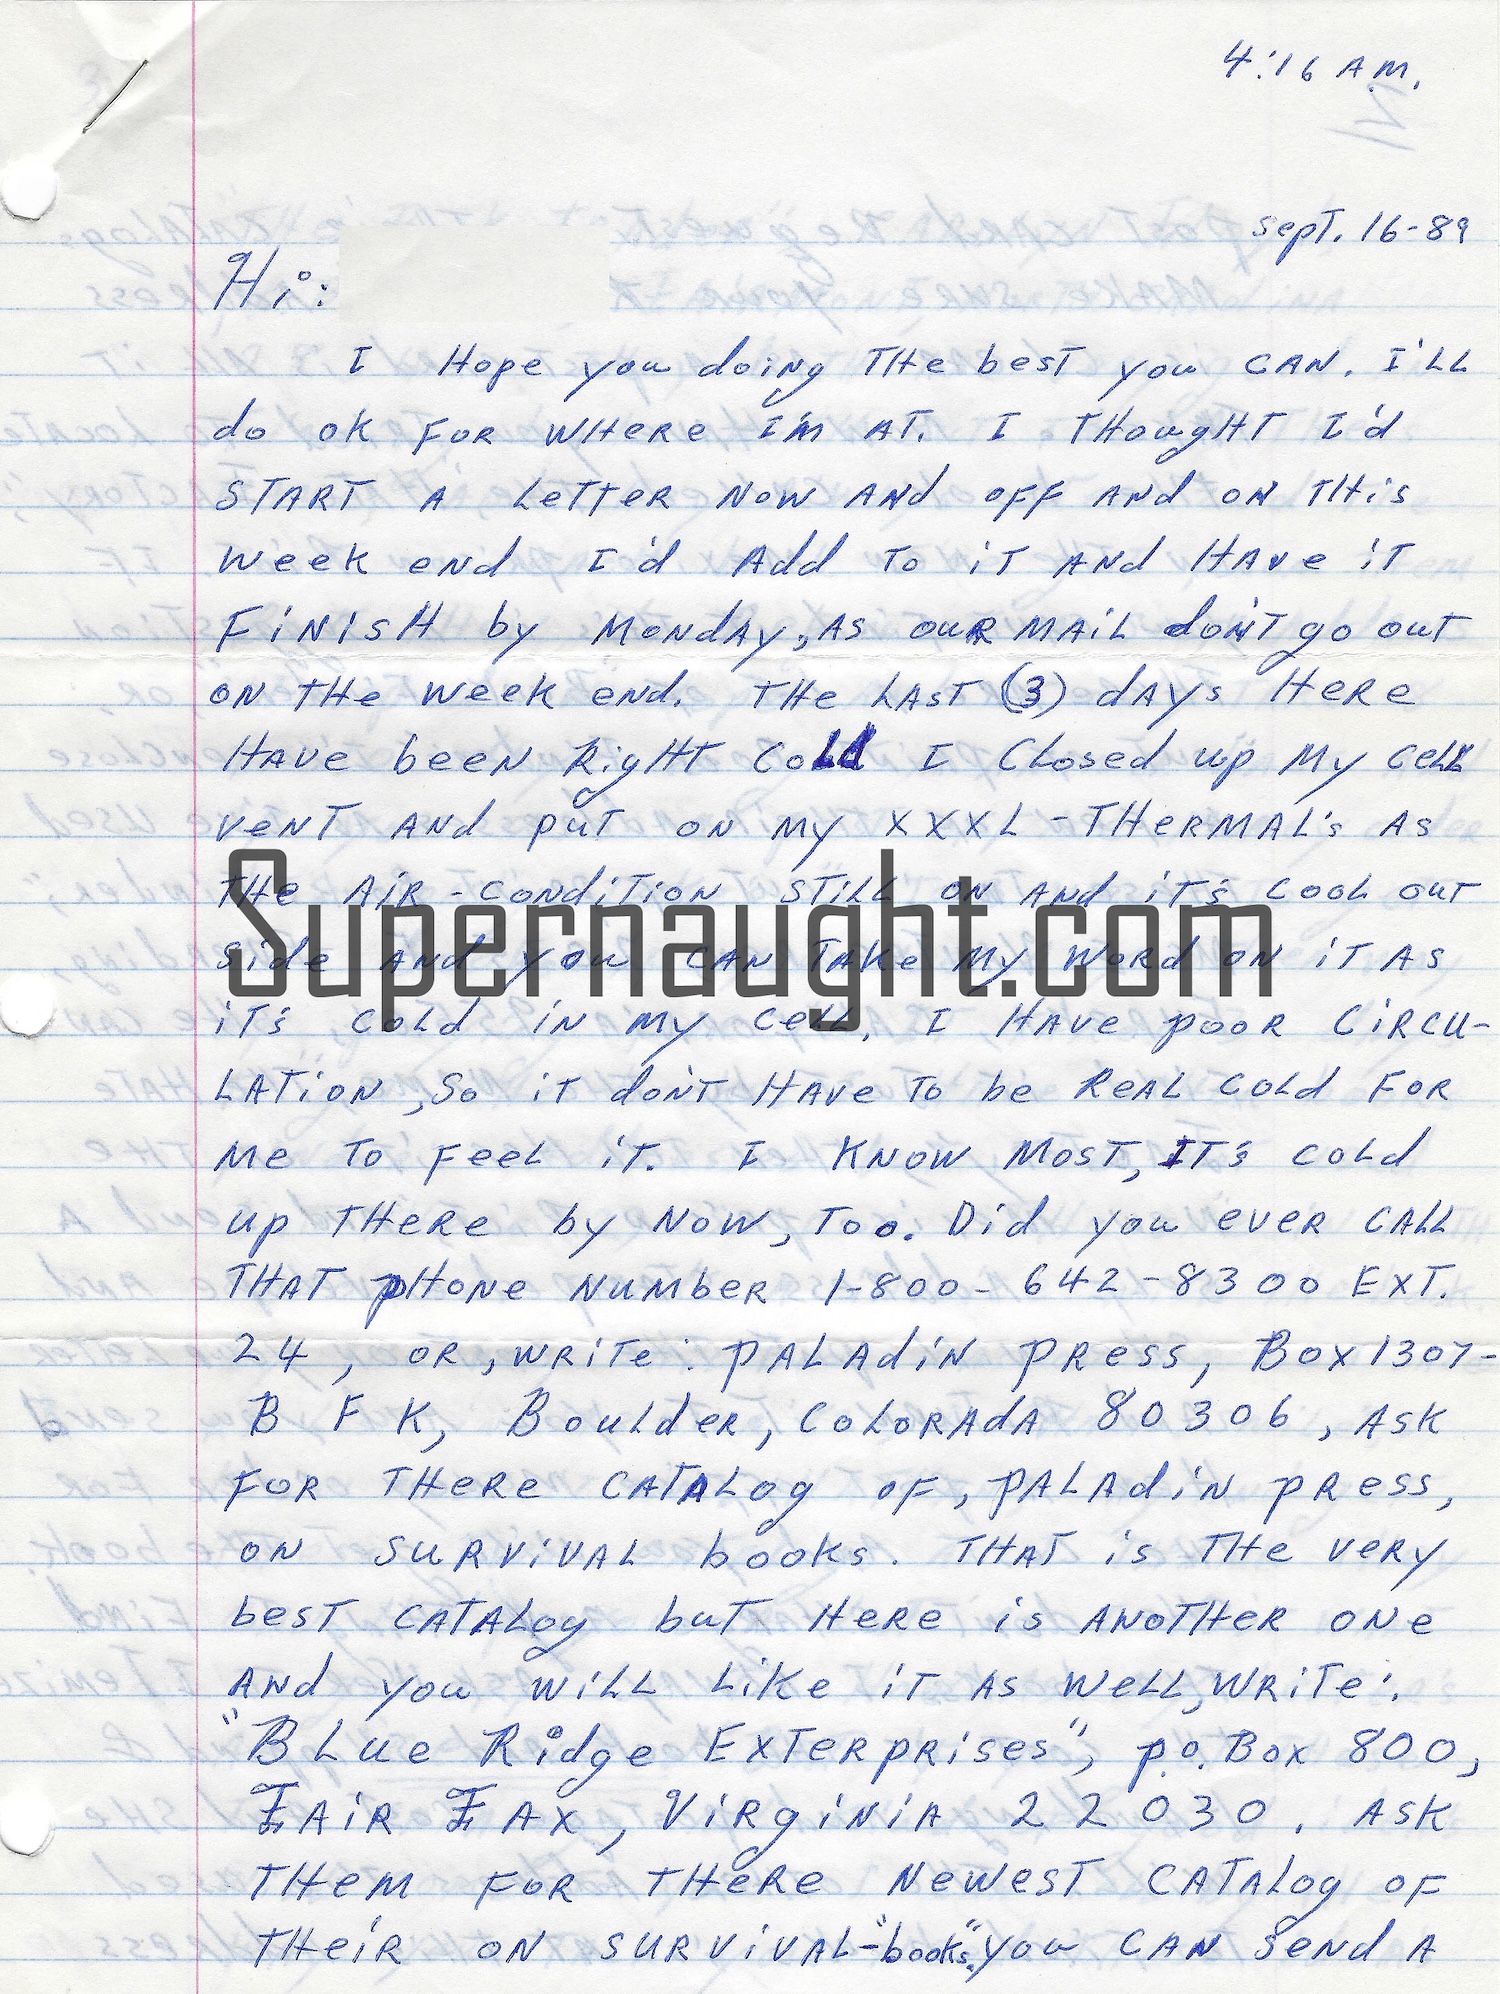 4:16 A.M.
Sept. 16-89
Hi:
I Hope you doing THe best you CAN. I'LL
do ok FOR WHERE I'M AT. I THougHT I'd
START A LeTTER NOW ANd OFF ANd ON THis
Week end I'd Add To iT ANd HAVe iT
FiNisH by MoNdAy, AS OuR MAiL doN'T go ouT
ON THe Week eNd. THe LAST (3) dAys HeRe
HAVe beeN RigHT CoLd I CLosed up My CeLL
VeNT ANd puT oN My XXXL-THeRMAL's AS
THe AiR-CoNdiTioN STiLL ON ANd iT's CooL ouT
Side ANd you CAN TAKe My WoRd oN iT AS
iT's CoLd iN My CeLL. I HAVe pooR CiRCu-
LATioN, So iT doN'T HAVe To be ReAL CoLd FOR
Me To FeeL iT. I KNow MosT, IT's CoLd
up THeRe by NoW, Too. Did you eveR CALL
THAT pHoNe NuMbeR 1-800-642-8300 EXT.
24, OR, WRiTe: PALAdiN PRess, Box 1307-
B F K, BouLdeR, CoLoRAdA 80306, ASK
FOR THeRe CATALog oF, PALAdiN PRess,
ON SuRViVAL books. THAT is THe VeRy
besT CATALog buT HeRe is ANoTHeR oNe
ANd you WiLL LiKe iT AS WeLL, WRiTe:
"BLue Ridge EXTeRpRises", P.O. Box 800,
FAiR FAx, ViRgiNiA 22030. ASK
THeM FoR THeRe NeWesT CATALog oF
THeiR oN SuRViVAL-"books". you CAN SeNd A
Supernaught.com